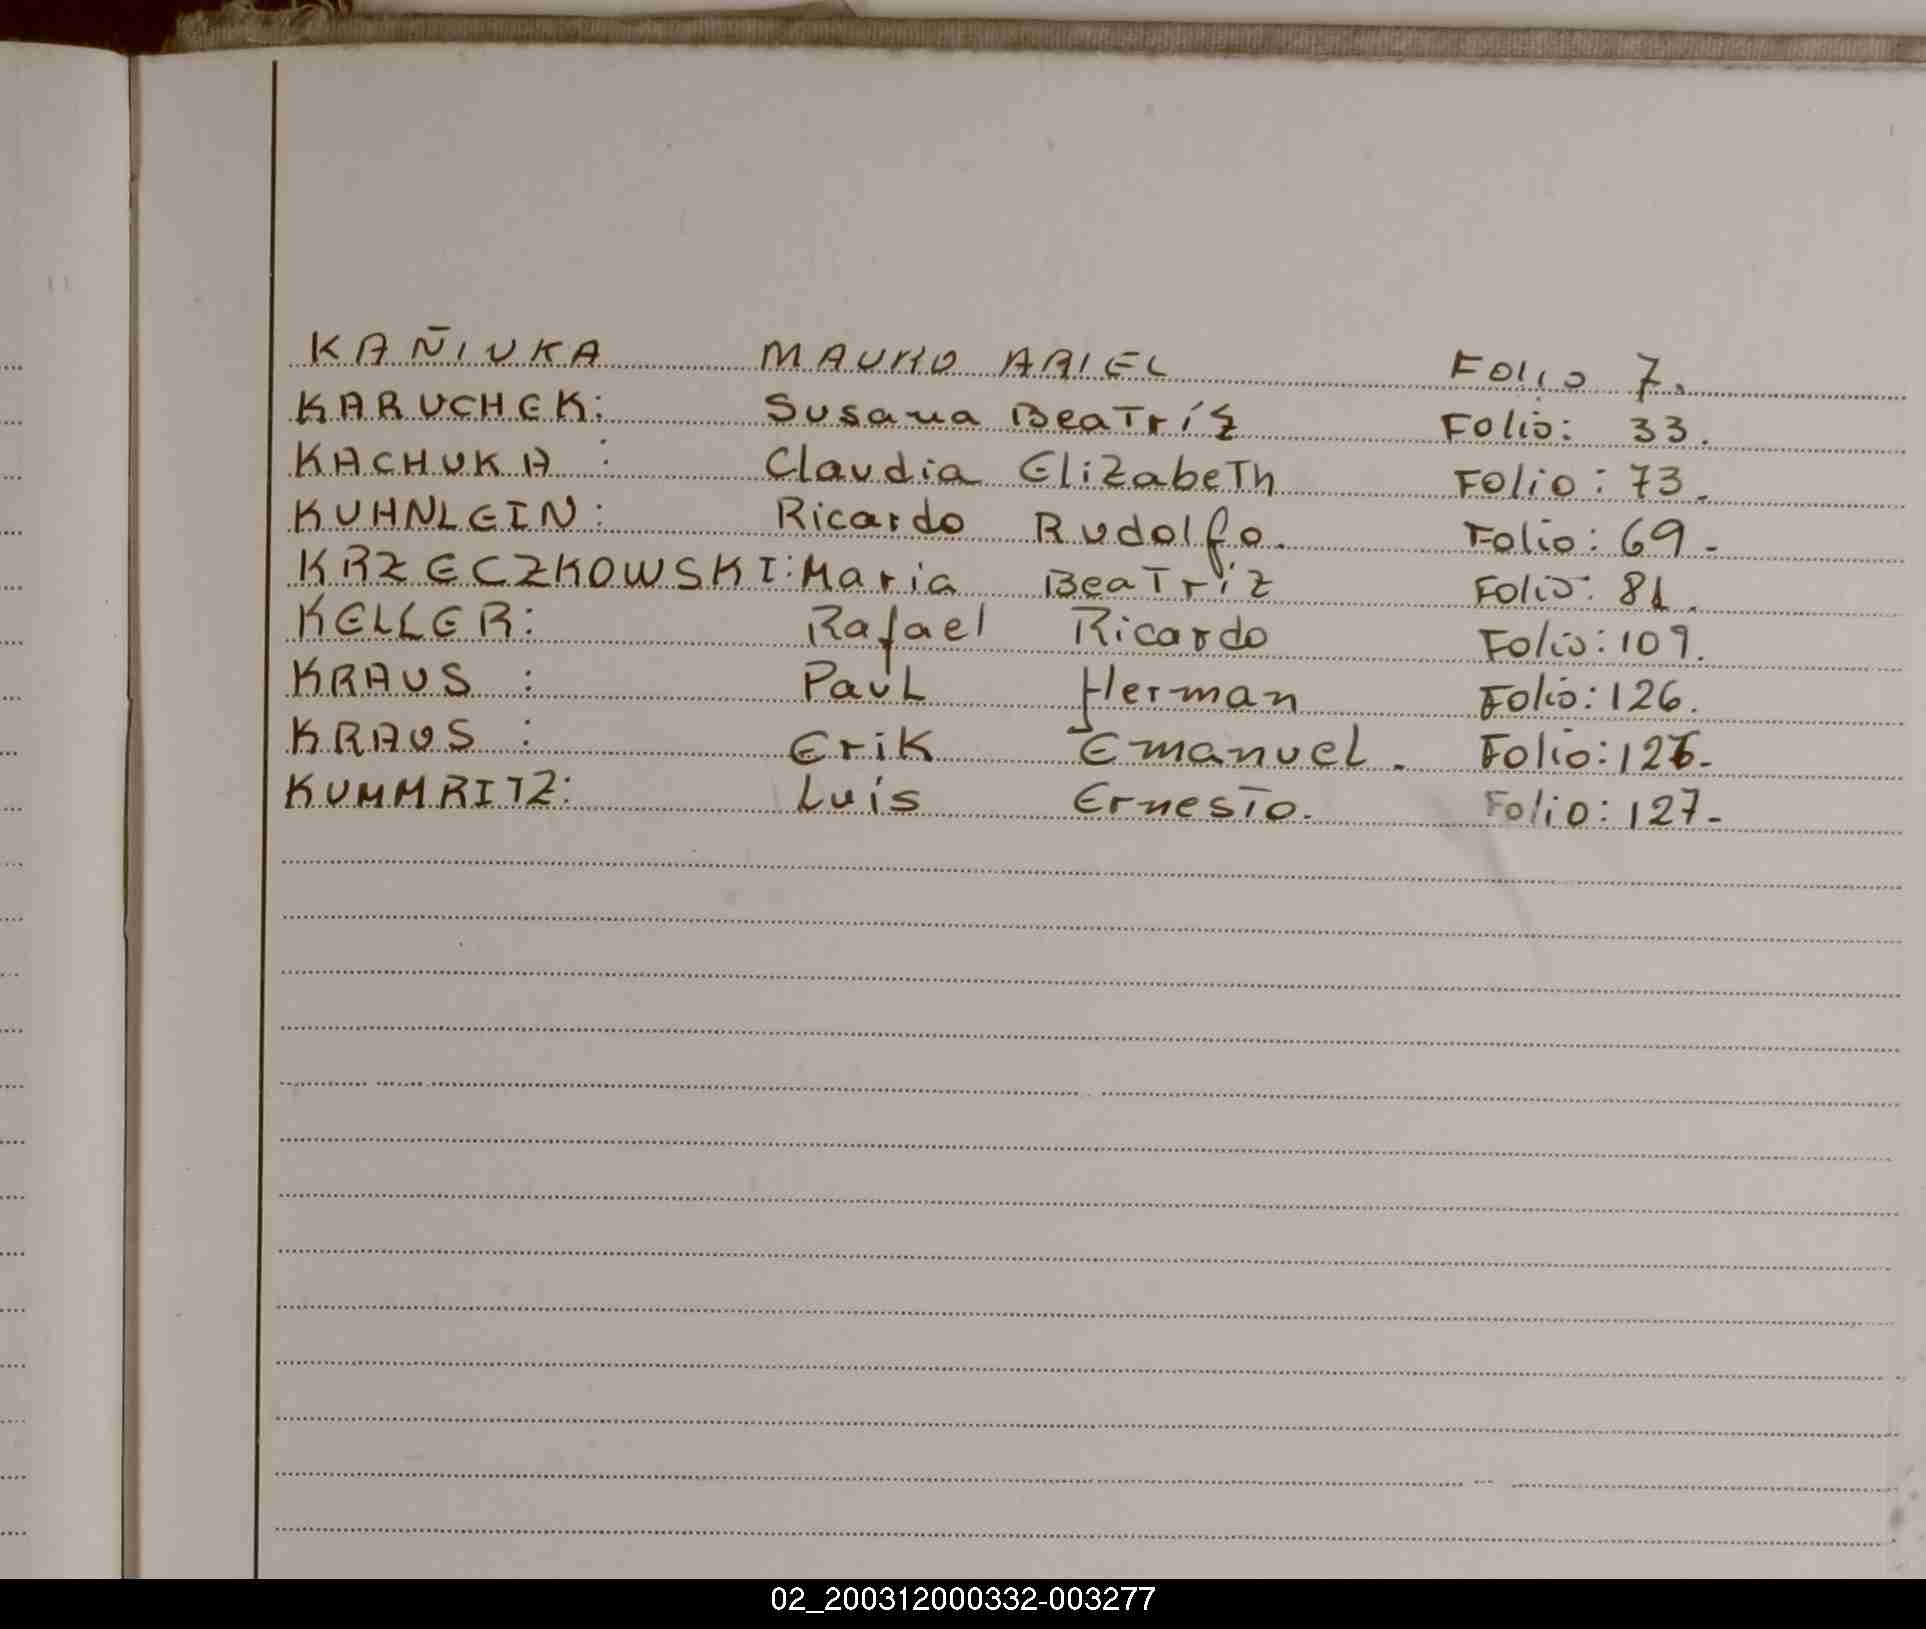 KAÑIUKA MAURO ARIEL Folio 7.
KARUCHEK: Susana Beatríz Folio: 33.
KACHUKA : Claudia Elizabeth Folio: 73.
KUHNLEIN: Ricardo Rudolfo. Folio: 69-
KRZECZKOWSKI: Maria Beatríz Folio: 81.
KELLER: Rafael Ricardo Folio: 109.
KRAUS : Paul Herman Folio: 126.
KRAUS : Erik Emanuel. Folio: 126-
KUMMRITZ: Luis Ernesto. Folio: 127-
02_200312000332-003277